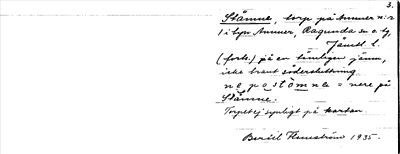 3.
Stämne, torp på Ammer n:r
1 i byn Ammer, Ragunda sn o. tg,
Jämtl. l.
(forts.) på en tämligen jämn,
icke brant södersluttning.
ne po stòmna = nere på
Stämne.
Torpet ej synligt på kartan.
Bertil Flemström 1935.